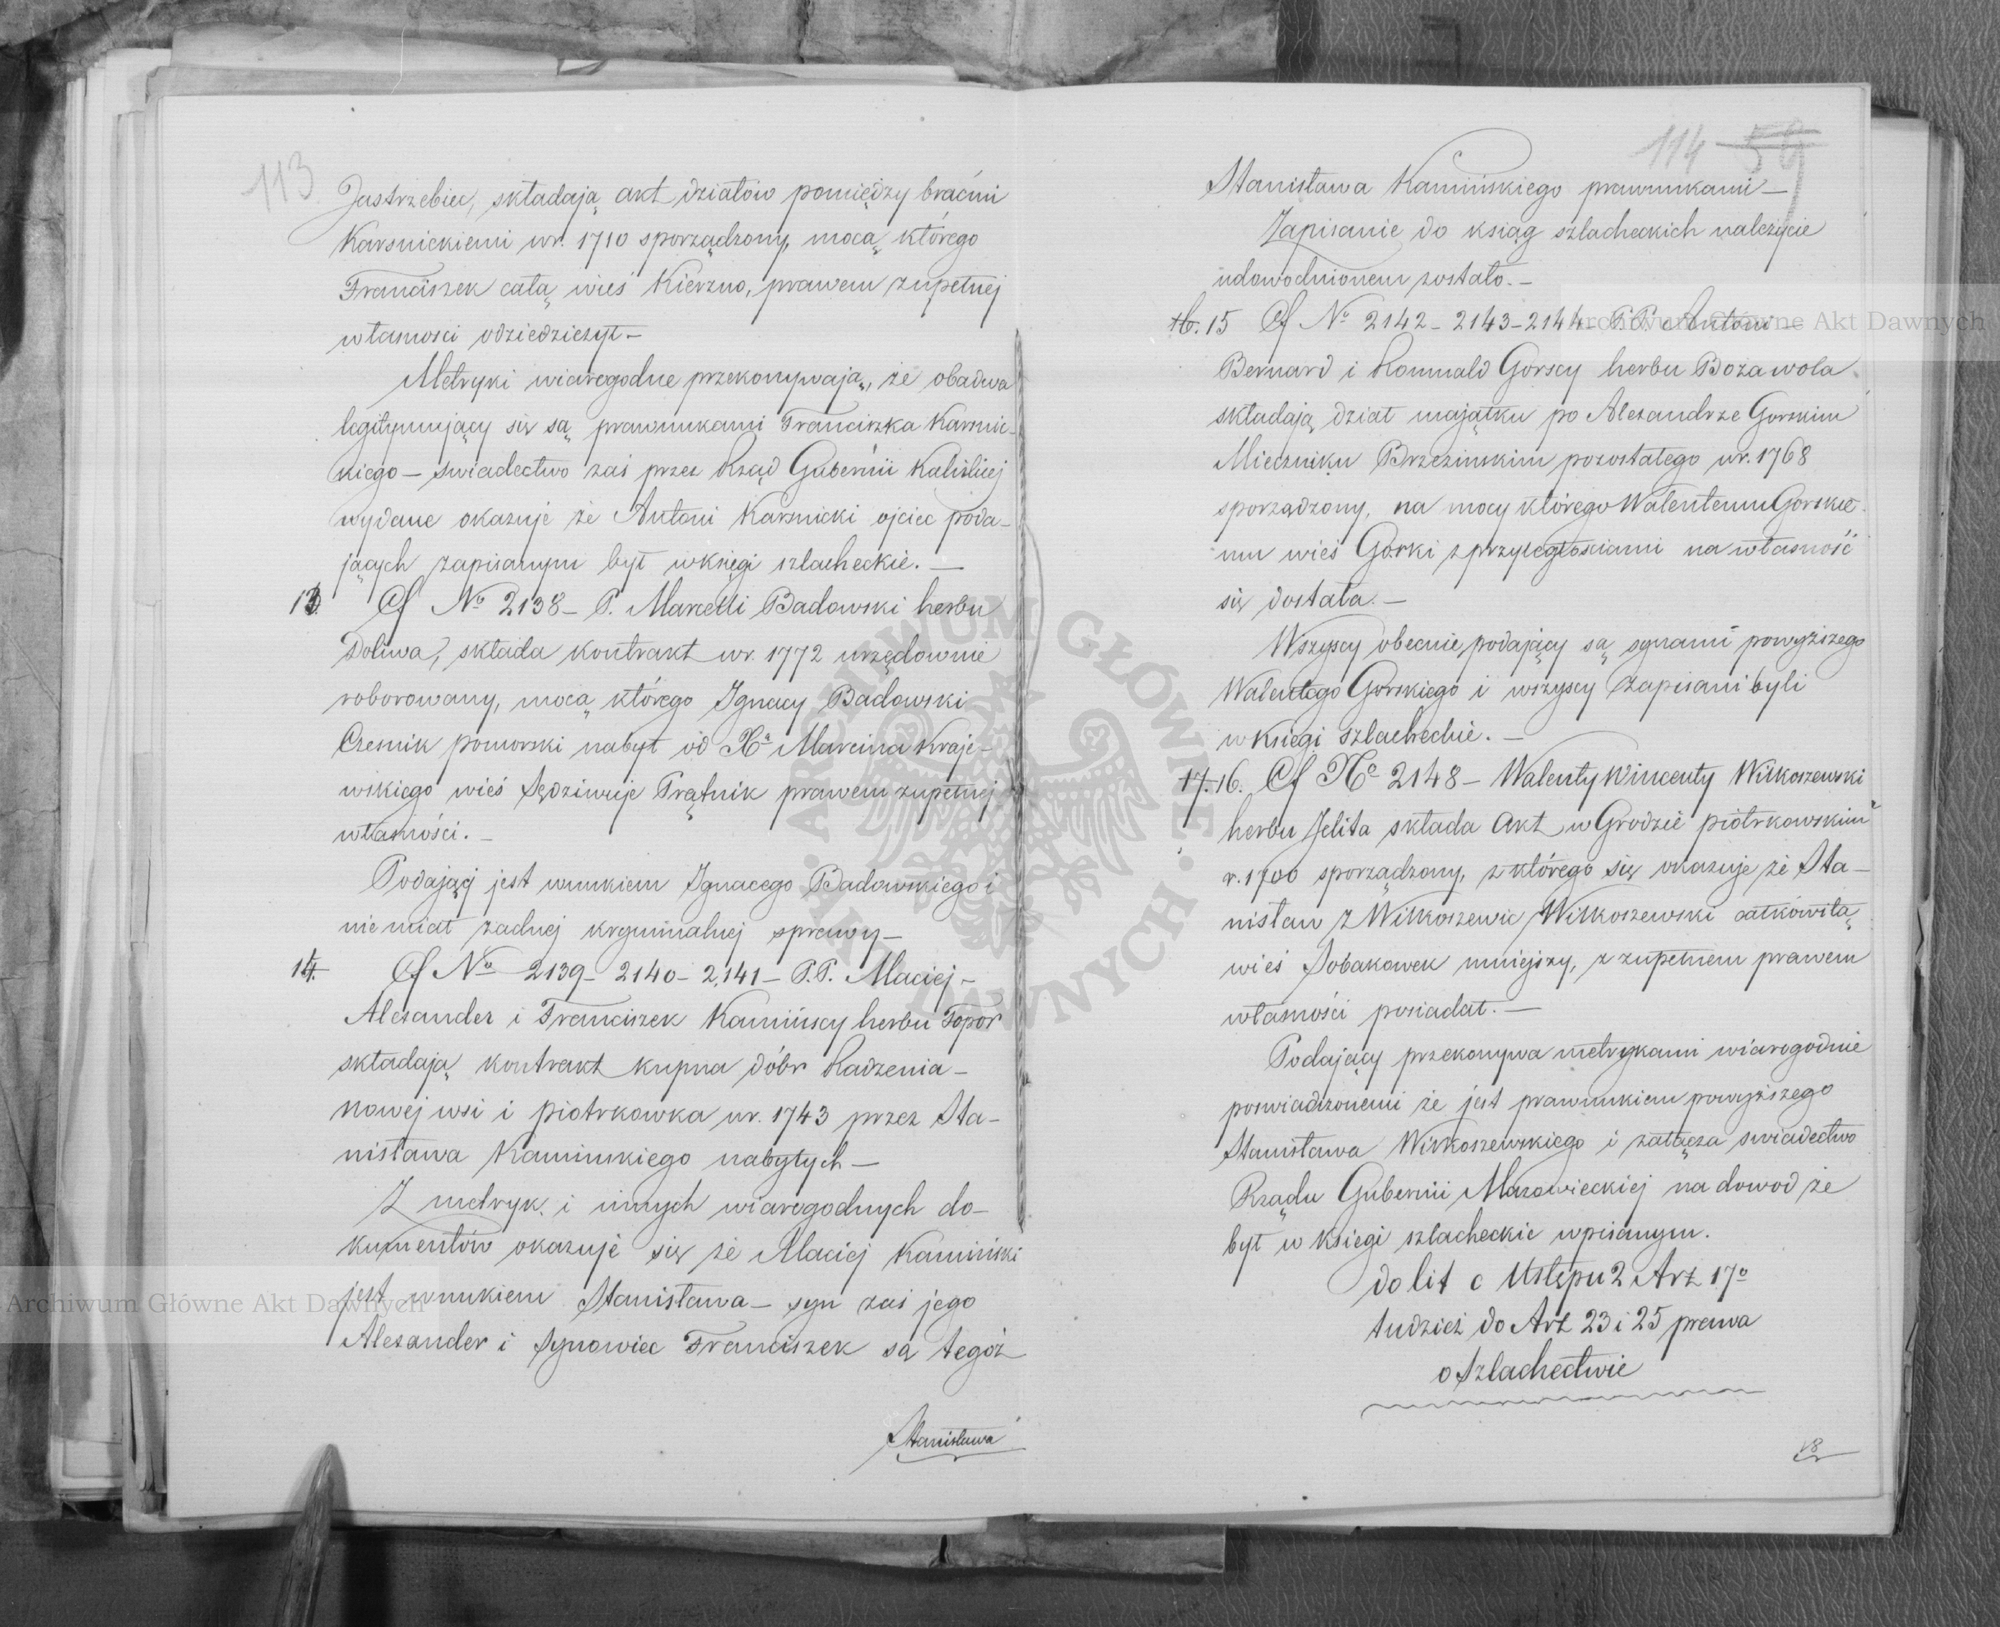 113
Jastrzebiec, składają akt działów pomiędzy braćmi
Karsnickiemi wr. 1710 sporządzony, mocą którego
Franciszek całą wieś Kierzno, prawem zupełnej
własności odziedziczył –
Metryki wiarogodne przekonywają, że obadwa
legitymujący się są prawnukami Franciszka Karsnic-
kiego – swiadectwo zaś przez Rząd Gubernii Kaliskiej
wydane okazuje że Antoni Karsnicki ojciec poda-
jących zapisanym był w księgi szlacheckie. –
13 Cf No 2138 – P. Marcelli Badowski herbu
Doliwa, składa kontrakt wr. 1772 urzędownie
roborowany, mocą którego Ignacy Badowski
Czesnik pomorski nabył od Marcina Kraje-
wskiego wieś Prątnik prawem zupełnej
własności. –
Podający jest wnukiem Ignacego Badowskiego i
nie miał żadnej kryminalnej sprawy –
14 Cf No 2139 – 2140 – 2141 – P.P. Maciej –
Alexander i Franciszek Kamińscy herbu Topór
składają kontrakt kupna dóbr Radzenia-
nowej wsi i piotrkowka wr. 1743 przez Sta-
nisława Kaminskiego nabytych –
Z metryk i innych wiarogodnych do-
kumentów okazuje się że Maciej Kamiński
jest wnukiem Stanisława – syn zaś jego
Alexander i Synowiec Franciszek są tegoż
Stanisława
114 59
Stanisława Kamińskiego prawnukami –
Zapisanie do ksiąg szlacheckich należycie
udowodnionem zostało. –
16. 15 Cf No 2142 – 2143 – 2144 – P.P. Antoni –
Bernard i Romuald Gorscy herbu Boża wola
składają dział majątku po Alexandrze Gorskim
Mieczniku Brzezinskim pozostałego wr. 1768
sporządzony, na mocy którego Walentemu Gorskie-
mu wieś Górki z przyległościami na własność
się dostała. –
Wszyscy obecnie podający są synami powyższego
Walentego Gorskiego i wszyscy zapisani byli
w księgi szlacheckie. –
17. 16. Cf No 2148 – Walenty Wincenty Witkoszewski
herbu Jelita składa Akt w Grodzie piotrkowskim
r. 1700 sporządzony, z którego się okazuje że Sta-
nisław z Witkoszewic Witkoszewski całkowitą
wieś Sobakowek mniejszy, z zupełnem prawem
własności posiadał. –
Podający przekonywa metrykami wiarogodnie
poswiadczonemi że jest prawnukiem powyższego
Stanisława Witkoszewskiego i załącza swiadectwo
Rządu Gubernii Mazowieckiej na dowod że
był w księgi szlacheckie wpisanym.
do lit c Ustępu 2 Art 17º
tudzież do Art 23 i 25 prawa
o Szlachectwie
18
Archiwum Główne Akt Dawnych
Archiwum Główne Akt Dawnych
ARCHIWUM GŁÓWNE AKT DAWNYCH